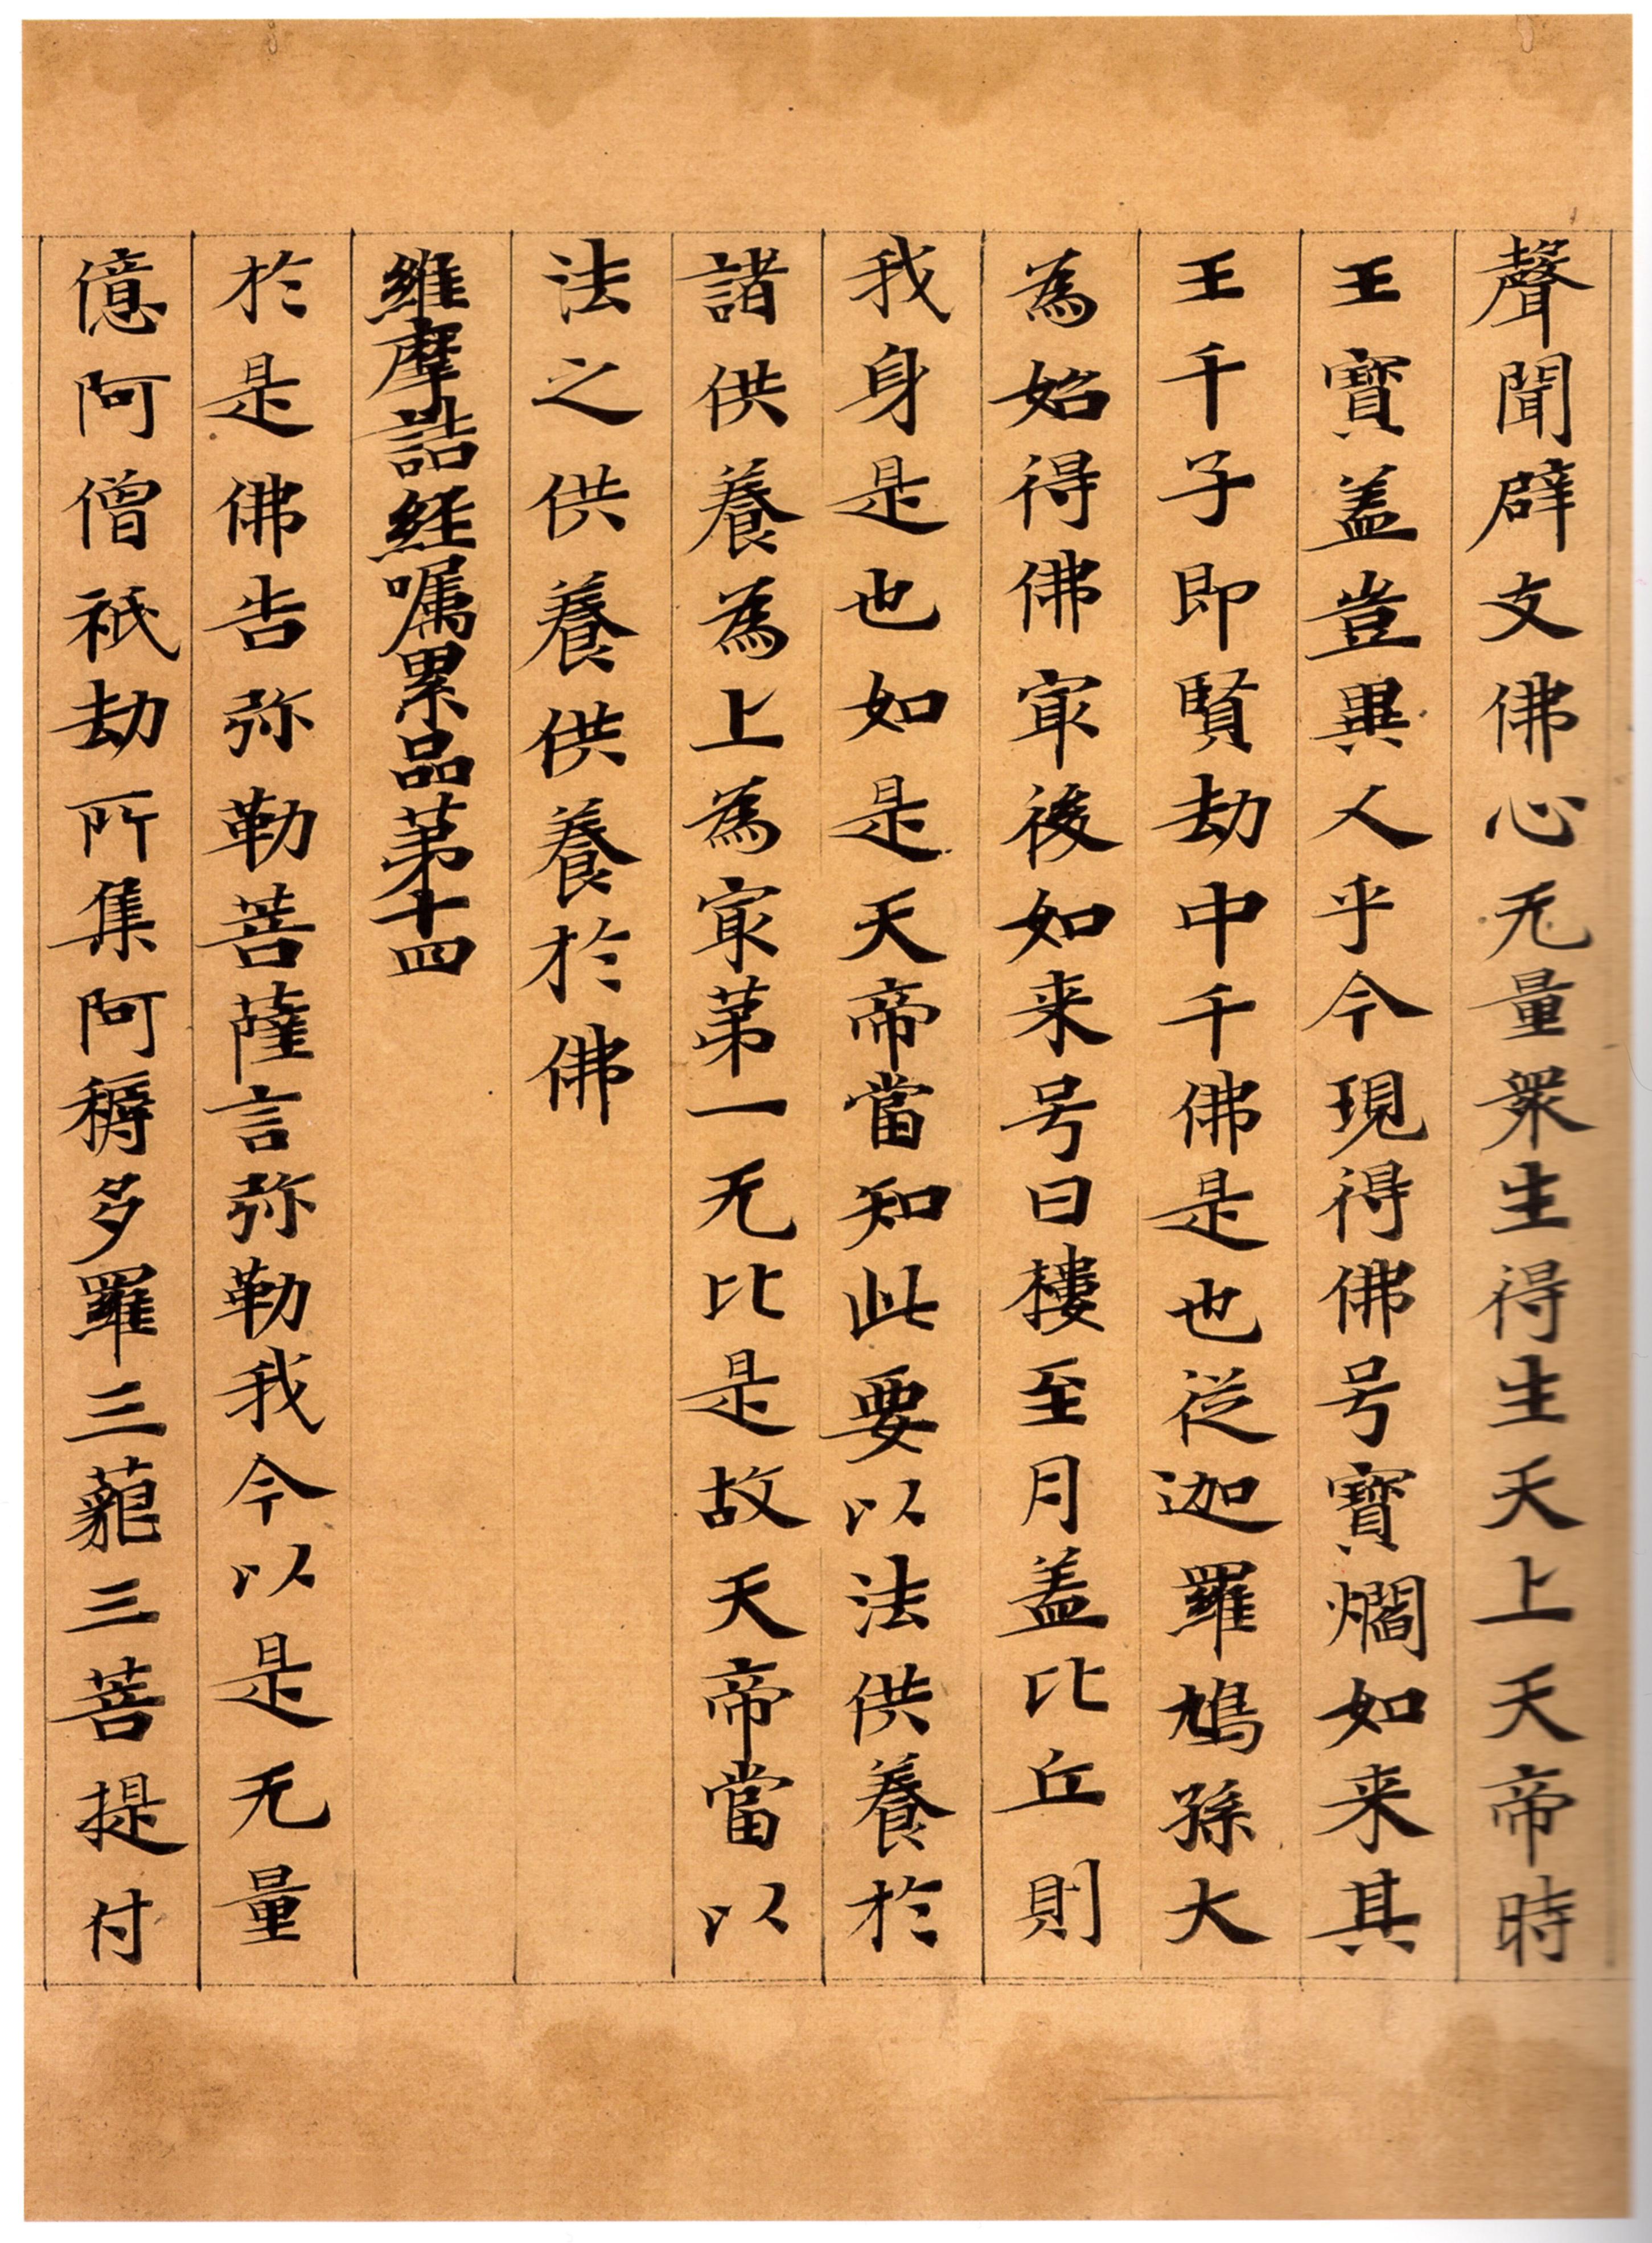 聲聞辟支佛心无量眾生得生天上天帝時
王寶盖豈異人乎今現得佛号寶爓如来其
王千子即賢劫中千佛是也從迦羅鳩孫大
為始得佛㝡後如来号曰樓至月盖比丘則
我身是也如是天帝當知此要以法供養於
諸供養為上為㝡苐一无比是故天帝當以
法之供養供養於佛
維摩詰経嘱累品苐十四
於是佛告弥勒菩薩言弥勒我今以是无量
億阿僧祇劫所集阿耨多羅三藐三菩提付